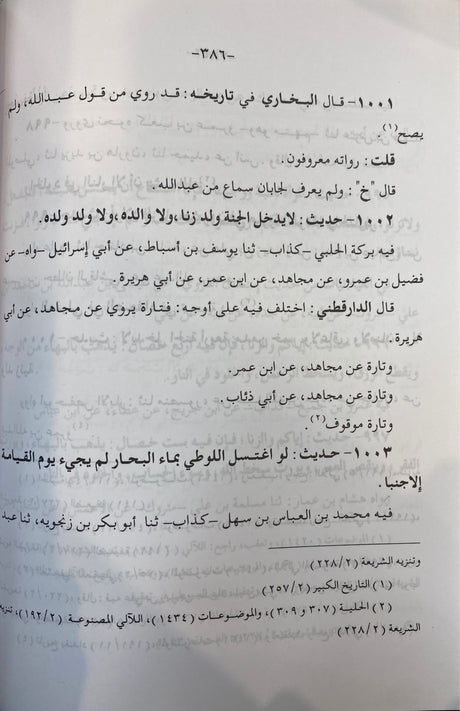 -٣٨٦-
١٠٠١- قال البخاري في تاريخه: قد روي من قول عبدالله، ولم
يصح(١).
قلت: رواته معروفون.
قال "خ": ولم يعرف لجابان سماع من عبدالله.
١٠٠٢- حديث: لايدخل الجنة ولد زنا، ولا والده، ولا ولد ولده.
فيه بركة الحلبي -كذاب- ثنا يوسف بن أسباط، عن أبي إسرائيل -واه- عن
فضيل بن عمرو، عن مجاهد، عن ابن عمر، عن أبي هريرة.
قال الدارقطني: اختلف فيه على أوجه: فتارة يروي عن مجاهد، عن أبي
هريرة.
وتارة عن مجاهد، عن ابن عمر.
وتارة عن مجاهد، عن أبي ذئاب.
وتارة موقوف(٢).
١٠٠٣- حديث: لو اغتسل اللوطي بماء البحار لم يجيء يوم القيامة
إلاجنبا.
فيه محمد بن العباس بن سهل -كذاب- ثنا أبو بكر بن زنجويه، ثنا عبد
وتنزيه الشريعة (٢٢٨/٢)
(١) التاريخ الكبير (٢٥٧/٢)
(٢) الحلية (٣٠٧ و ٣٠٩)، والموضوعات (١٤٣٤)، اللآلي المصنوعة (١٩٢/٢)، تنزيه
الشريعة (٢٢٨/٢)